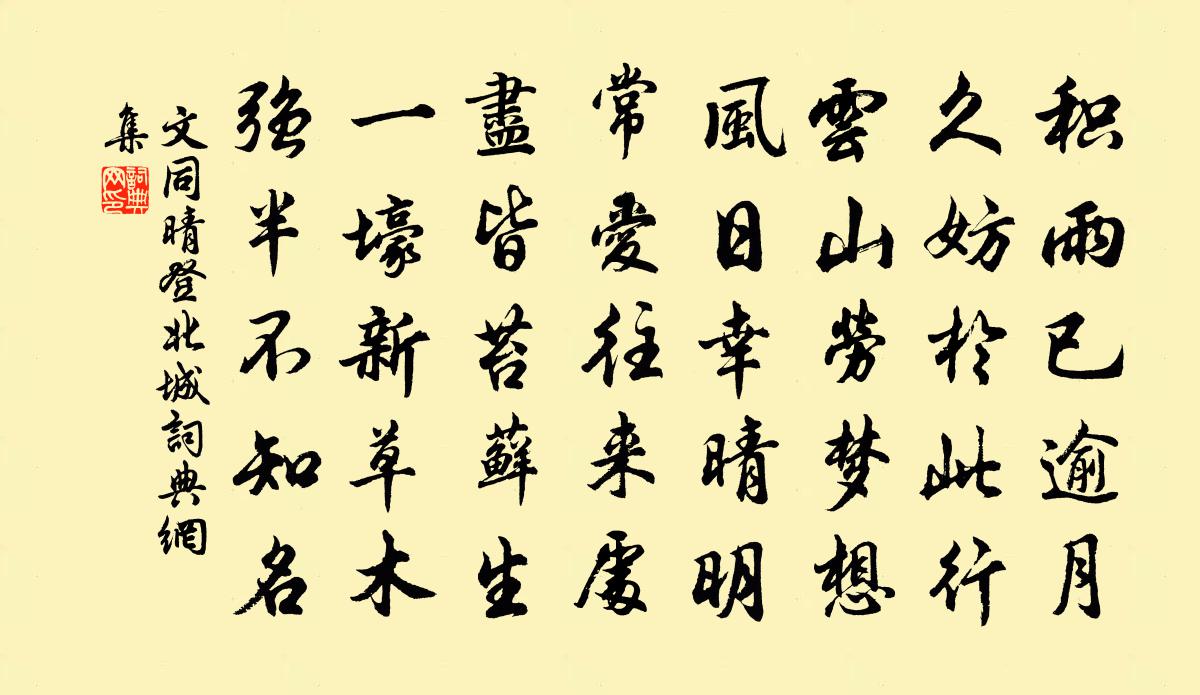 积雨已逾月
久妨於此行
雲山勞梦想
風日幸晴明
常愛往来處
盡皆苔蘚生
一壕新草木
强半不知名
文同晴登北城詞典網
集
詞典
网印